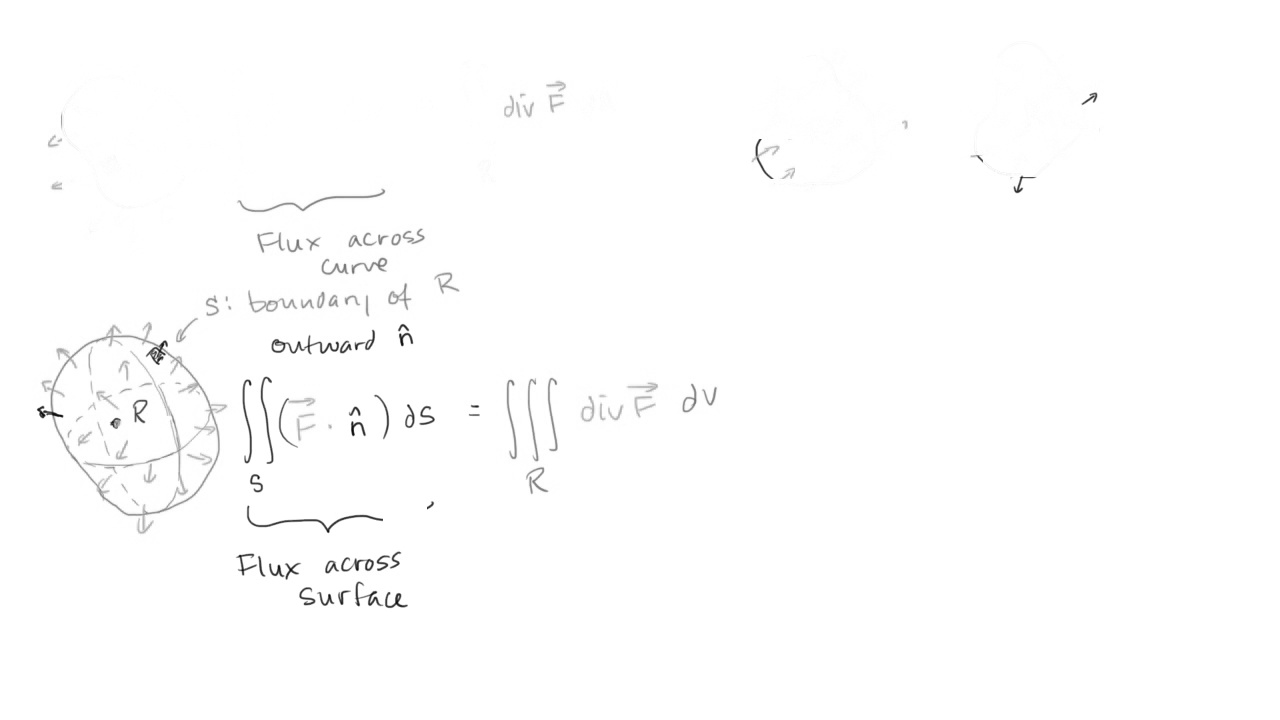 div F⃗
Flux across
curve
S: boundary of R
outward n̂
R
∬(F⃗ · n̂) ds = ∭ div F⃗ dv
S R
Flux across
surface